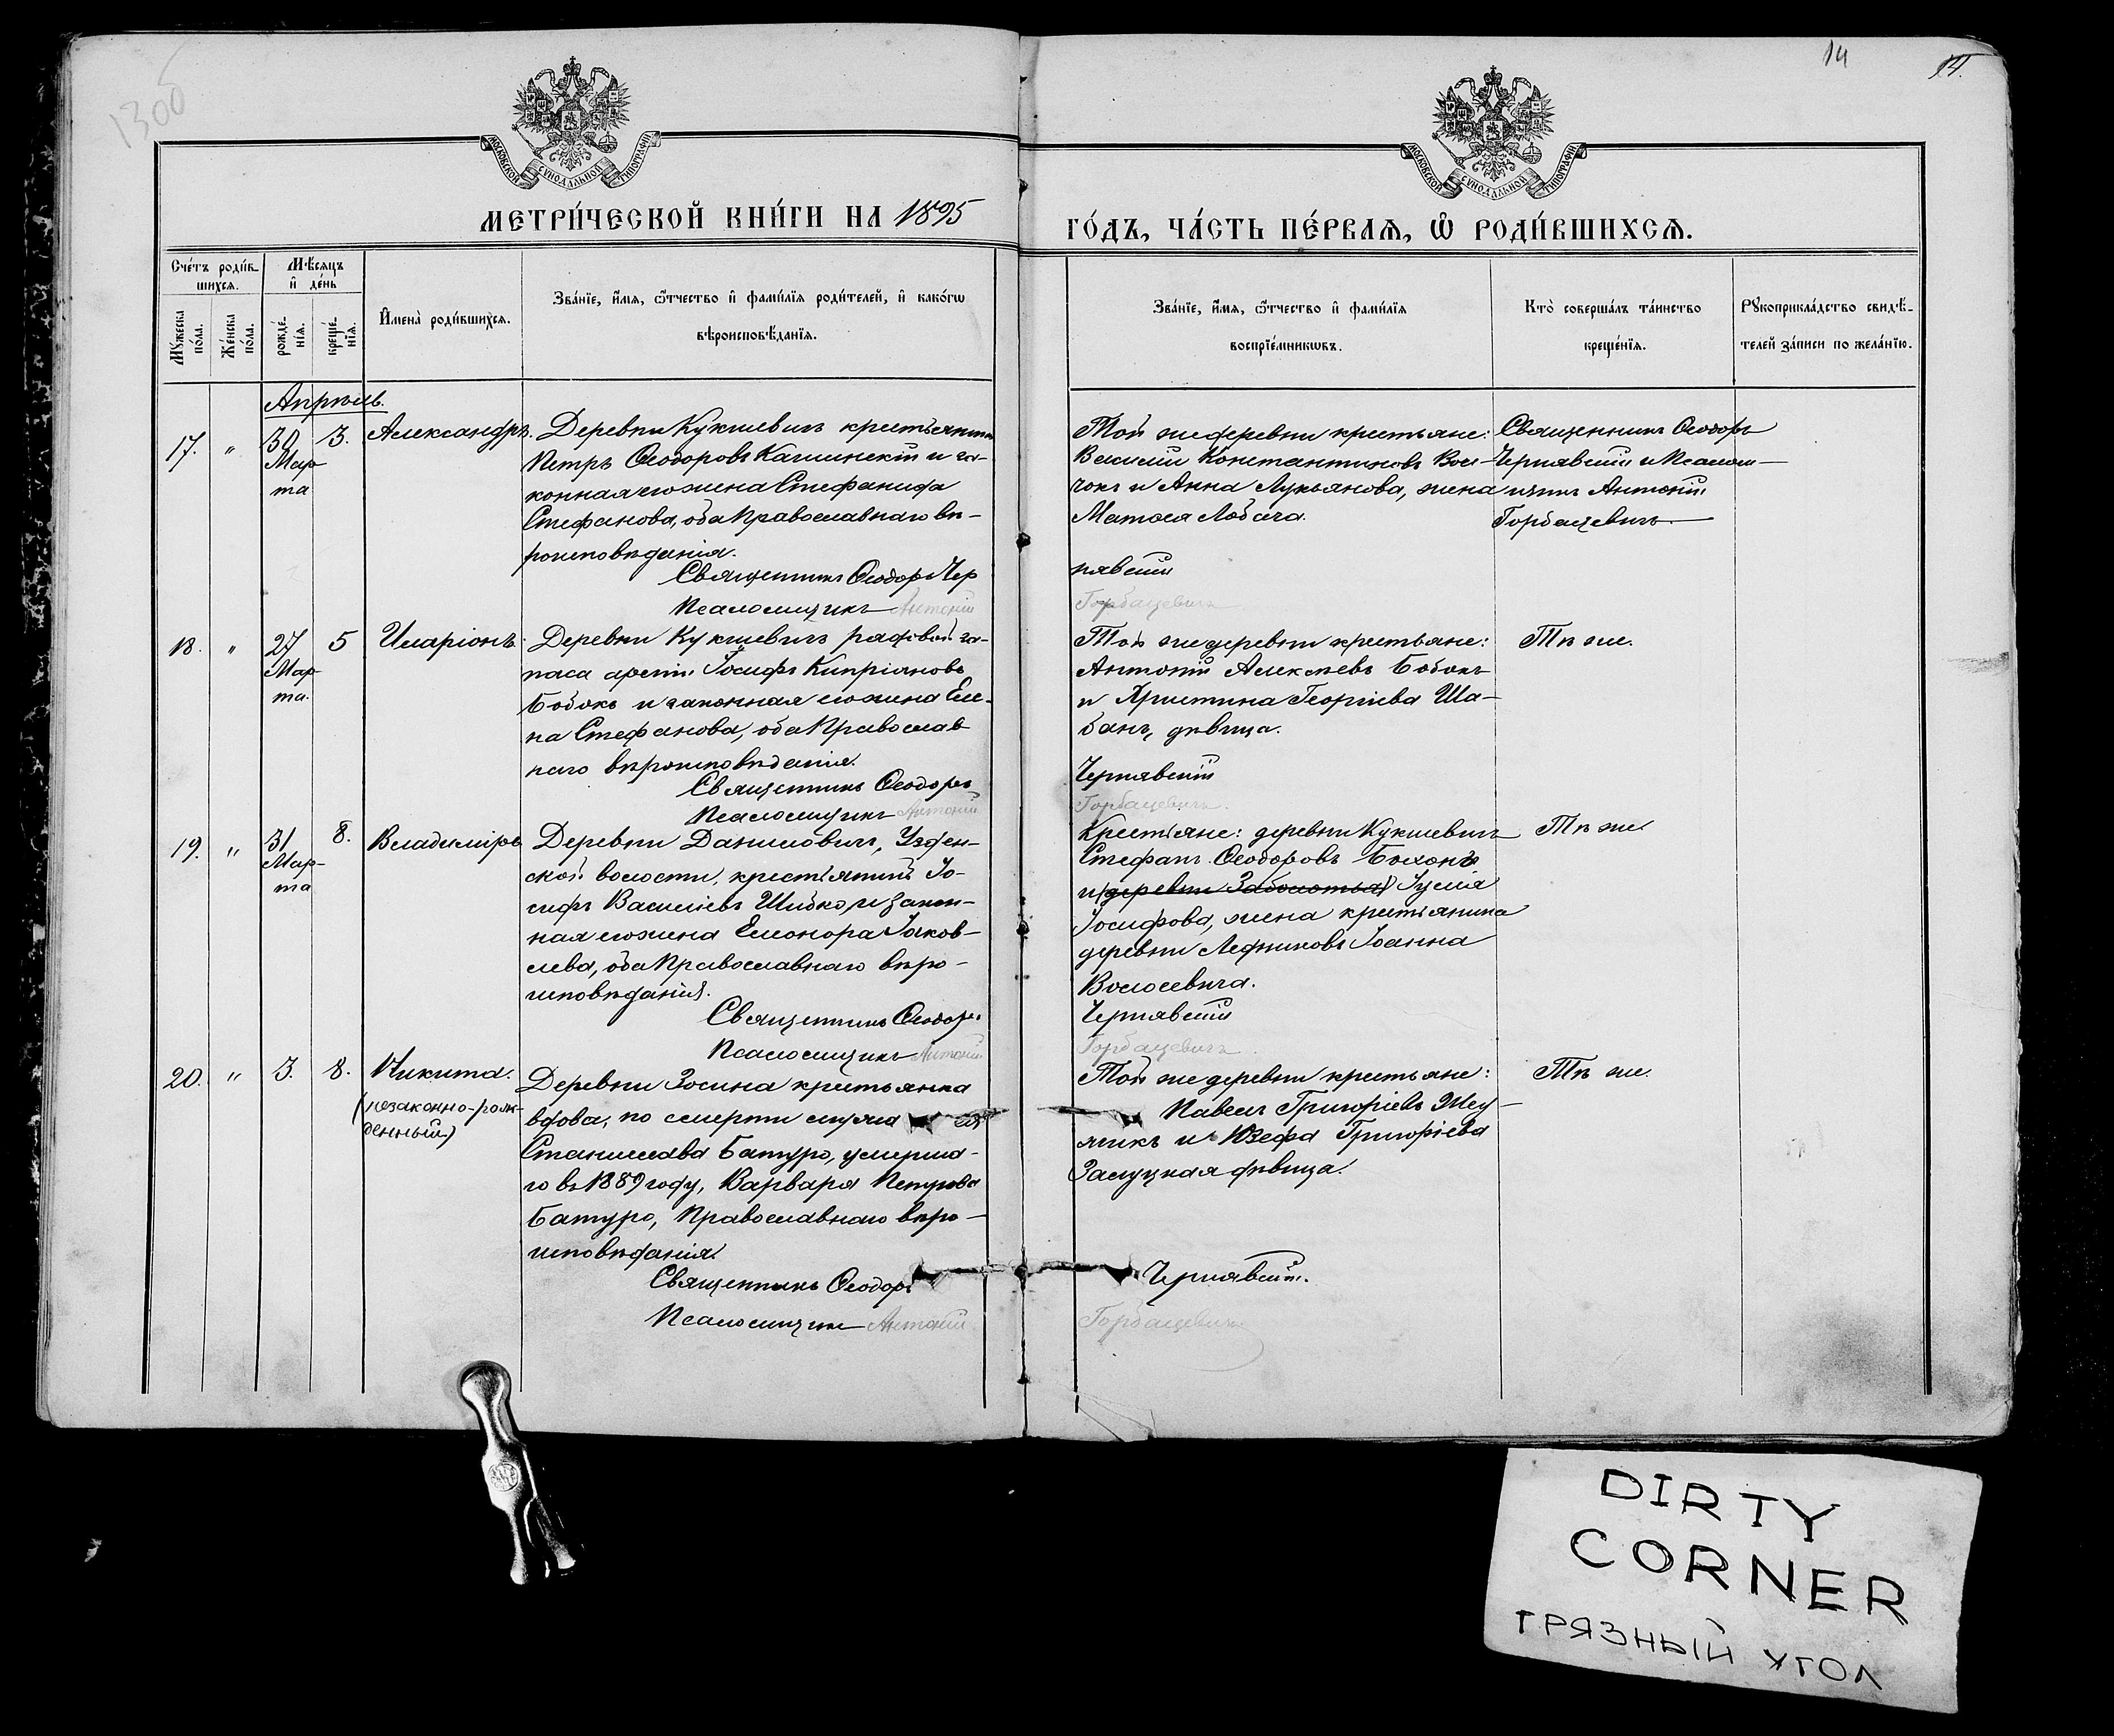 130б
14
14.
МОСКОВСКОЙ СѴНОДАЛЬНОЙ ТИПОГРАФІИ
МОСКОВСКОЙ СѴНОДАЛЬНОЙ ТИПОГРАФІИ
МЕТРИ́ЧЕСКОЙ КНИ́ГИ НА 1895
ГО́ДЪ, ЧА́СТЬ ПЕ́РВАѦ, Ѽ РОДИ́ВШИХСѦ.
Сче́тъ роди́в-
шихсѧ.
Мѣсѧцъ
и҆ де́нь
Мꙋ́жеска по́ла.
Же́нска по́ла.
рожде́-нїѧ.
креще́-нїѧ.
И҆мена̀ роди́вшихсѧ.
Зва́нїе, и҆́мѧ, ѻ҆́тчество и҆ фами́лїѧ роди́телей, и҆ како́гѡ
вѣроисповѣ́данїѧ.
Зва́нїе, и҆́мѧ, ѻ҆́тчество и҆ фами́лїѧ
воспрїе́мникѡвъ.
Кто̀ соверша́лъ та́инство
креще́нїѧ.
Рꙋкоприкла́дство свидѣ́-
телей за́писи по жела́нїю.
Апрѣль.
17. " 30 Мар-
та
3.
Александръ.
Деревни Кукшевичъ крестьянинъ
Петръ Ѳеодоровъ Качинскій и за-
конная его жена Стефанида
Стефанова, оба Православнаго вѣ-
роисповѣданія.
Священникъ Ѳеодоръ Чер
Псаломщикъ Антоній
Той же деревни крестьяне:
Василій Константиновъ Вол-
чокъ и Анна Лукьянова, жена
Матвея Лобача.
нявскій
Горбацевичъ
Священникъ Ѳеодоръ
Чернявскій и Псалом-
щикъ Антоній
Горбацевичъ.
18. " 27
Мар-
та.
5
Иларіонъ.
Деревни Кукшевичъ рядовой за-
паса арміи Іосифъ Кипріановъ
Бобокъ и законная его жена Еле-
на Стефанова, оба Православ
наго вѣроисповѣданія.
Священникъ Ѳеодоръ
Псаломщикъ Антоній
Той же деревни крестьяне:
Антоній Алексѣевъ Бобокъ
и Христина Георгіева Ша-
банъ, дѣвица.
Чернявскій
Горбацевичъ.
Тѣ же.
19. " 31
Мар-
та
8.
Владиміръ
Деревни Даниловичъ, Узден-
ской волости, крестьянинъ Іо-
сифъ Василіевъ Шибко, и закон-
ная его жена Елеонора Іаков-
лева, оба Православнаго вѣро-
исповѣданія.
Священникъ Ѳеодоръ
Псаломщикъ Антоній
Крестьяне: деревни Кукшевичъ
Стефанъ Ѳеодоровъ
и (деревни Заболотья) Іулія
Іосифова, жена крестьянина
деревни Ледниковъ Іоанна
Волосевича.
Чернявскій
Горбацевичъ.
Тѣ же.
20. " 3. 8.
Никита.
(незаконно-рож-
денный)
Деревни Зосина крестьянка
вдова, по смерти мужа ея
Станислава Батуро, умерша-
го въ 1889 году, Варвара Петрова
Батуро, Православнаго вѣро-
исповѣданія.
Священникъ Ѳеодоръ
Псаломщикъ Антоній
Той же деревни крестьяне:
Павелъ Григоріевъ
и Юзефа Григоріева
Залуцкая дѣвица.
Чернявскій.
Горбацевичъ
Тѣ же.
DIRTY
CORNER
ГРЯЗНЫЙ УГОЛ